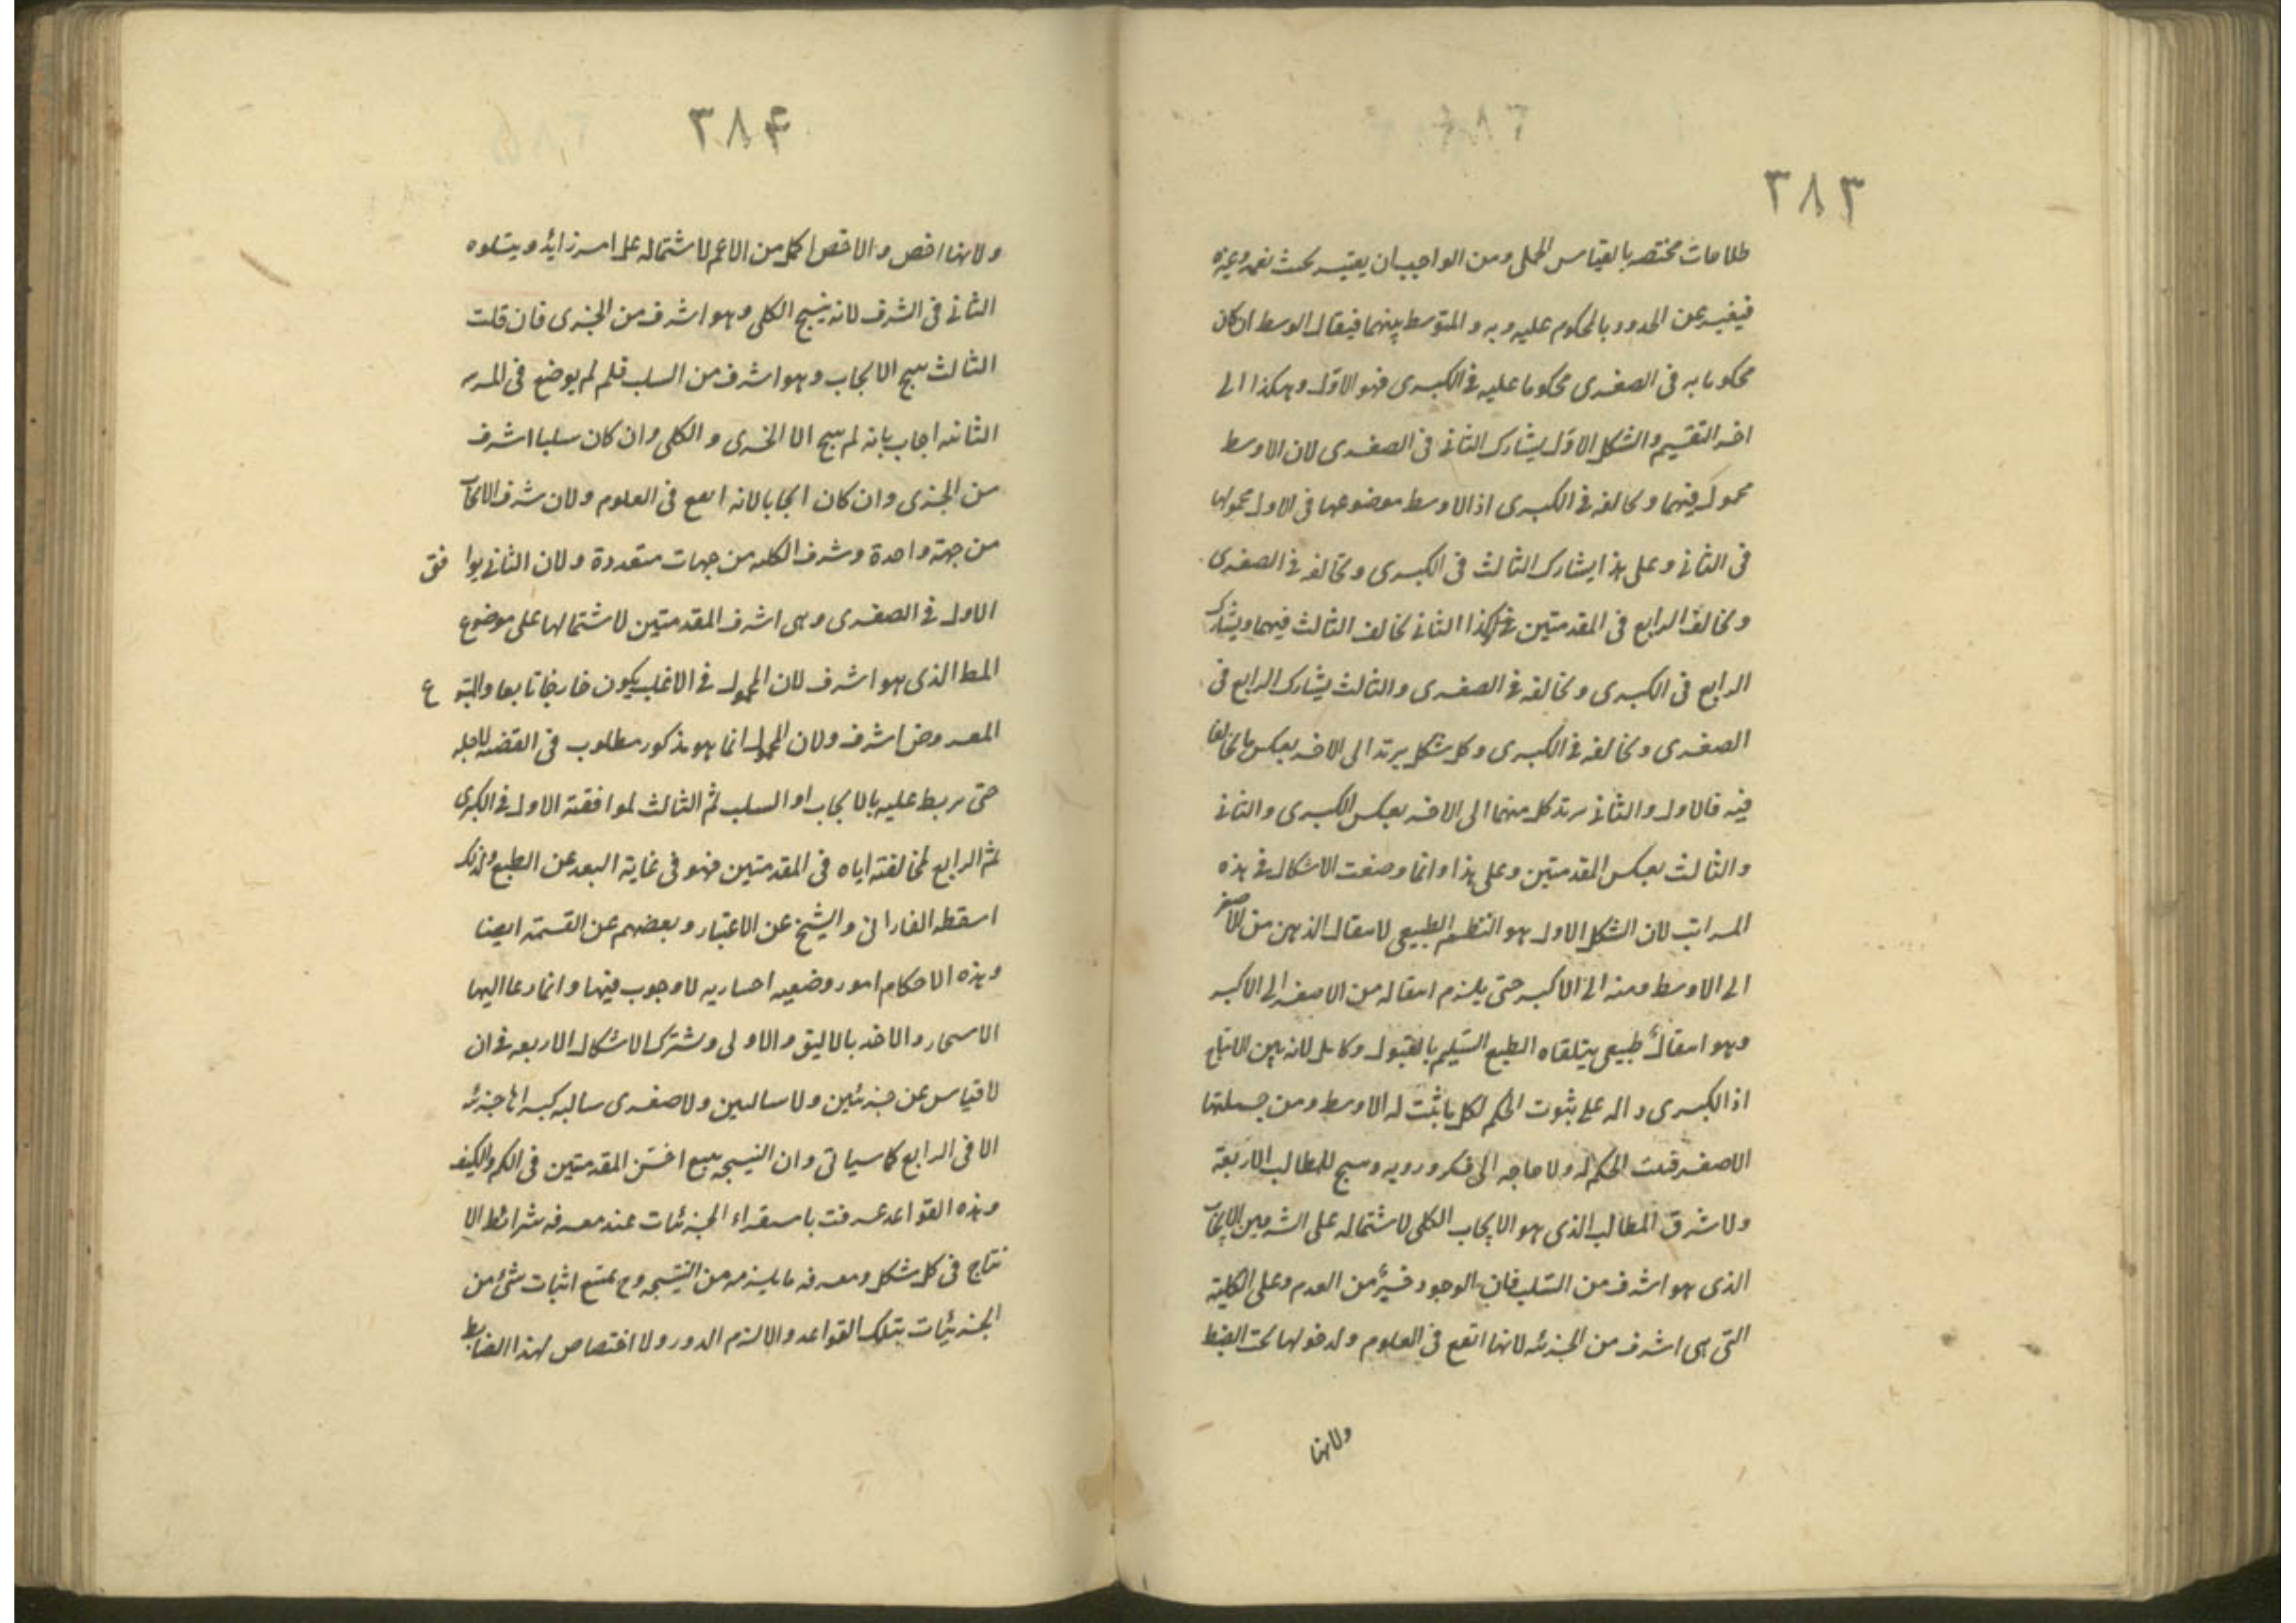 ٣٨٣
طلاحات مختصه بالقياس الحملى ومن الواجب ان يعتبر بحيث يعمه وغيره
فيغير عن الحدود بالمحكوم عليه وبه والمتوسط بينهما فيقال الوسط ان كان
محكوما به فى الصغرى محكوما عليه فى الكبرى فهو الاول وهكذا الى
اخر التقسيم والشكل الاول يشارك الثانى فى الصغرى لان الاوسط
محمول فيهما ويخالفه فى الكبرى اذ الاوسط موضوعها فى الاول محمولها
فى الثانى وعلى هذا يشارك الثالث فى الكبرى ويخالفه فى الصغرى
ويخالف الرابع فى المقدمتين هكذا الثانى يخالف الثالث فيهما ويشارك
الرابع فى الكبرى ويخالفه فى الصغرى والثالث يشارك الرابع فى
الصغرى ويخالفه فى الكبرى وكل شكل يرتد الى الاخر بعكس ما يخالفا
فيه فالاول والثانى يرتد كل منهما الى الاخر بعكس الكبرى والثانى
والثالث بعكس المقدمتين وعلى هذا وانما وضعت الاشكال فى هذه
المراتب لان الشكل الاول هو النظم الطبيعى لانتقال الذهن من الاصغر
الى الاوسط ومنه الى الاكبر حتى يلزم انتقاله من الاصغر الى الاكبر
وهو انتقال طبيعى يتلقاه الطبع السليم بالقبول وكامل لانه بين الانتاج
اذ الكبرى داله على ثبوت الحكم لكل ما ثبت له الاوسط ومن جملتها
الاصغر فثبت الحكم له ولا حاجه الى فكر ورويه وينتج للمطالب الاربعة
ولاشرف المطالب الذى هو الايجاب الكلى لاشتماله على الشرفين الايجاب
الذى هو اشرف من السلب فان الوجود خير من العدم وعلى الكلية
التى هى اشرف من الجزئه لانها انفع فى العلوم ولدخولها تحت الضبط
ولانها
٣٨٤
ولانها اخص والاخص اكمل من الاعم لاشتماله على امر زايد ويتلوه
الثانى فى الشرف لانه ينتج الكلى وهو اشرف من الجزى فان قلت
الثالث ينتج الايجاب وهو اشرف من السلب فلم لم يوضع فى المرتبه
الثانيه اجاب بانه لم ينتج الا الجزى والكلى وان كان سلبا اشرف
من الجزى وان كان ايجابا لانه انفع فى العلوم ولان شرف الايجاب
من جهة واحدة وشرف الكليه من جهات متعددة ولان الثانى يوا فق
الاول فى الصغرى وهى اشرف المقدمتين لاشتمالها على موضوع
المط الذى هو اشرف لان المحمول فى الاغلب يكون خارجا تابعا والمتبو ع
المعروض اشرف ولان المحمول انما هو مذكور مطلوب فى القضيه لاجله
حتى يربط عليه بالايجاب او السلب ثم الثالث لموافقته الاول فى الكبرى
ثم الرابع لمخالفته اياه فى المقدمتين فهو فى غاية البعد عن الطبع ولذلك
اسقطه الفارابى والشيخ عن الاعتبار وبعضهم عن القسمة ايضا
وهذه الاحكام امور وضعيه اختياريه لا وجوب فيها وانما دعا اليها
الاستحسان والاخذ بالاليق والاولى ويشترك الاشكال الاربعه فى ان
لا قياس عن جزئيتين ولا سالبتين ولا صغرى سالبه كبراها جزئيه
الا فى الرابع كما سياتى وان النتيجه يتبع اخس المقدمتين فى الكم والكيف
وهذه القواعد عرفت باستقراء الجزئيات عند معرفه شرائط الا
نتاج فى كل شكل ومعرفه ما يلزمه من النتيجه وح يمتنع اثبات شئ من
الجزئيات بتلك القواعد والا لزم الدور ولا اختصاص لهذا الضابط